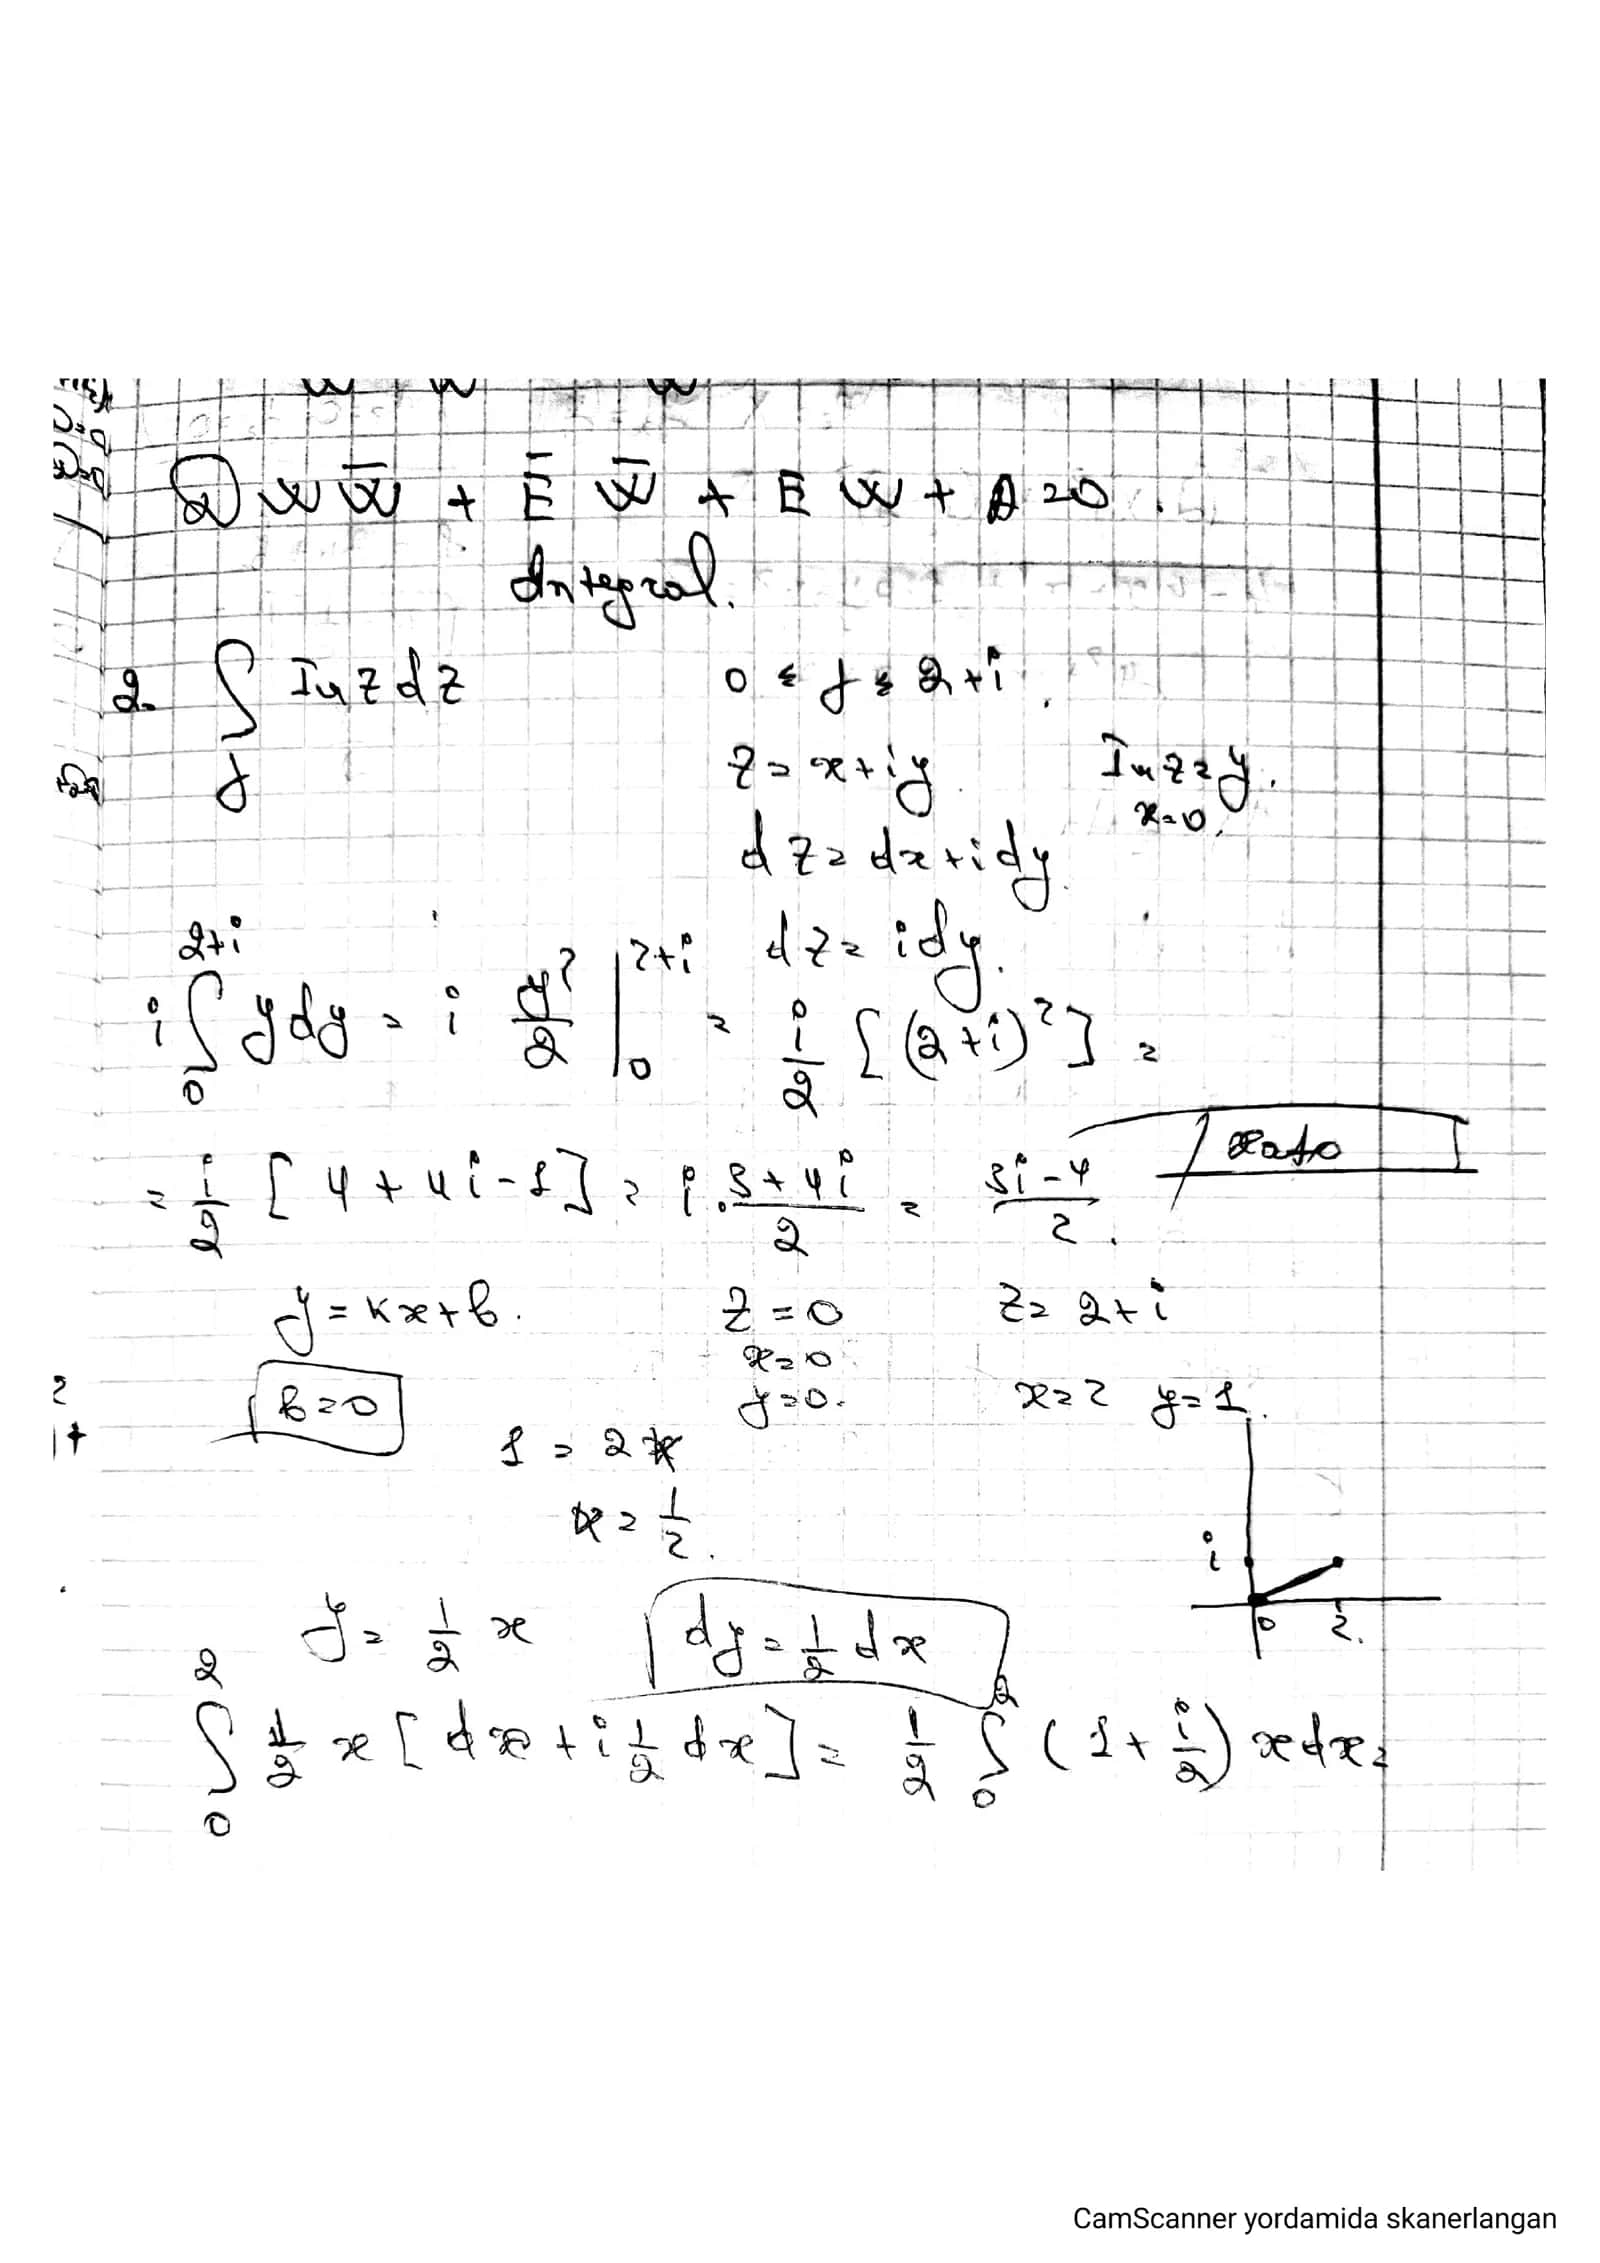 D w w̄ + Ē w̄ + E w + A = 0.
Integral.
2. ∫_γ Im z dz 0 ≤ γ ≤ 2+i.
z = x+iy Im z = y.
x=0.
dz = dx+idy.
dz = idy.
i ∫_0^{2+i} ydy = i y²/2 |_0^{2+i} = i/2 [(2+i)²] =
xato
= i/2 [4+4i-1] = i · (3+4i)/2 = (3i-4)/2.
y = kx+b. z=0 z = 2+i
x=0
b=0 y=0. x=2 y=1.
1 = 2k
k = 1/2.
i
y = 1/2 x dy = 1/2 dx 0 2.
∫_0^2 1/2 x [dx + i 1/2 dx] = 1/2 ∫_0^2 (1 + i/2) xdx =
CamScanner yordamida skanerlangan